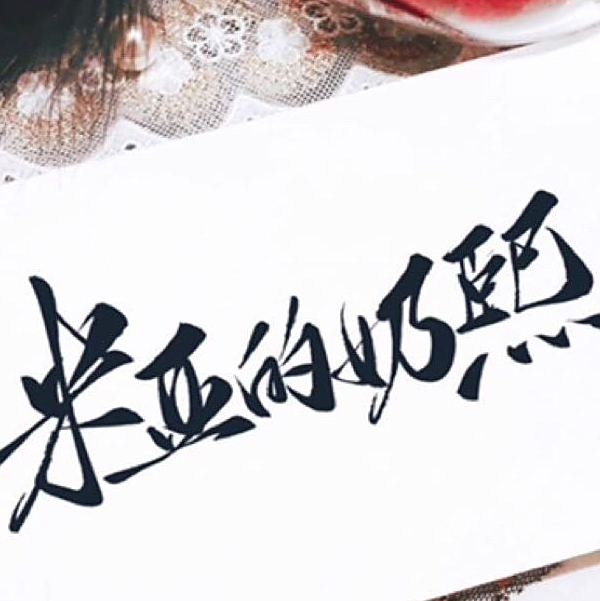 米亚的奶熙